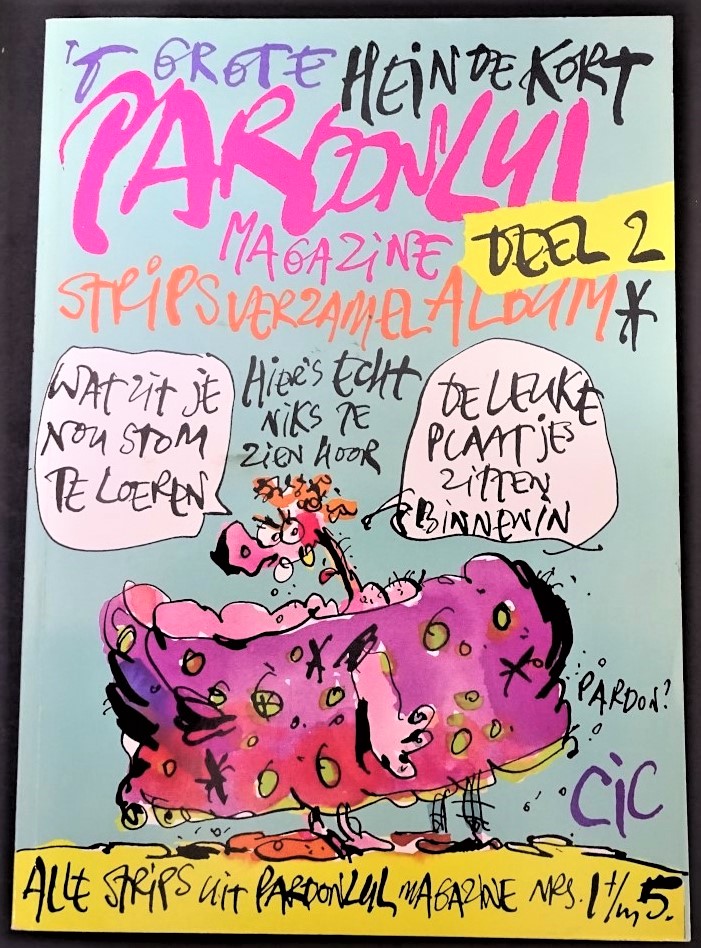 'T GROTE HEIN DE KORT
PARDONLUL
MAGAZINE DEEL 2
STRIPSVERZAMELALBUM*
WAT ZIT JE
NOU STOM
TE LOEREN
HIER'S ECHT
NIKS TE
ZIEN HOOR
DE LEUKE
PLAATJES
ZITTEN
BINNENIN
PARDON?
CIC
ALLE STRIPS UIT PARDONLUL MAGAZINE NRS. 1 t/m 5.